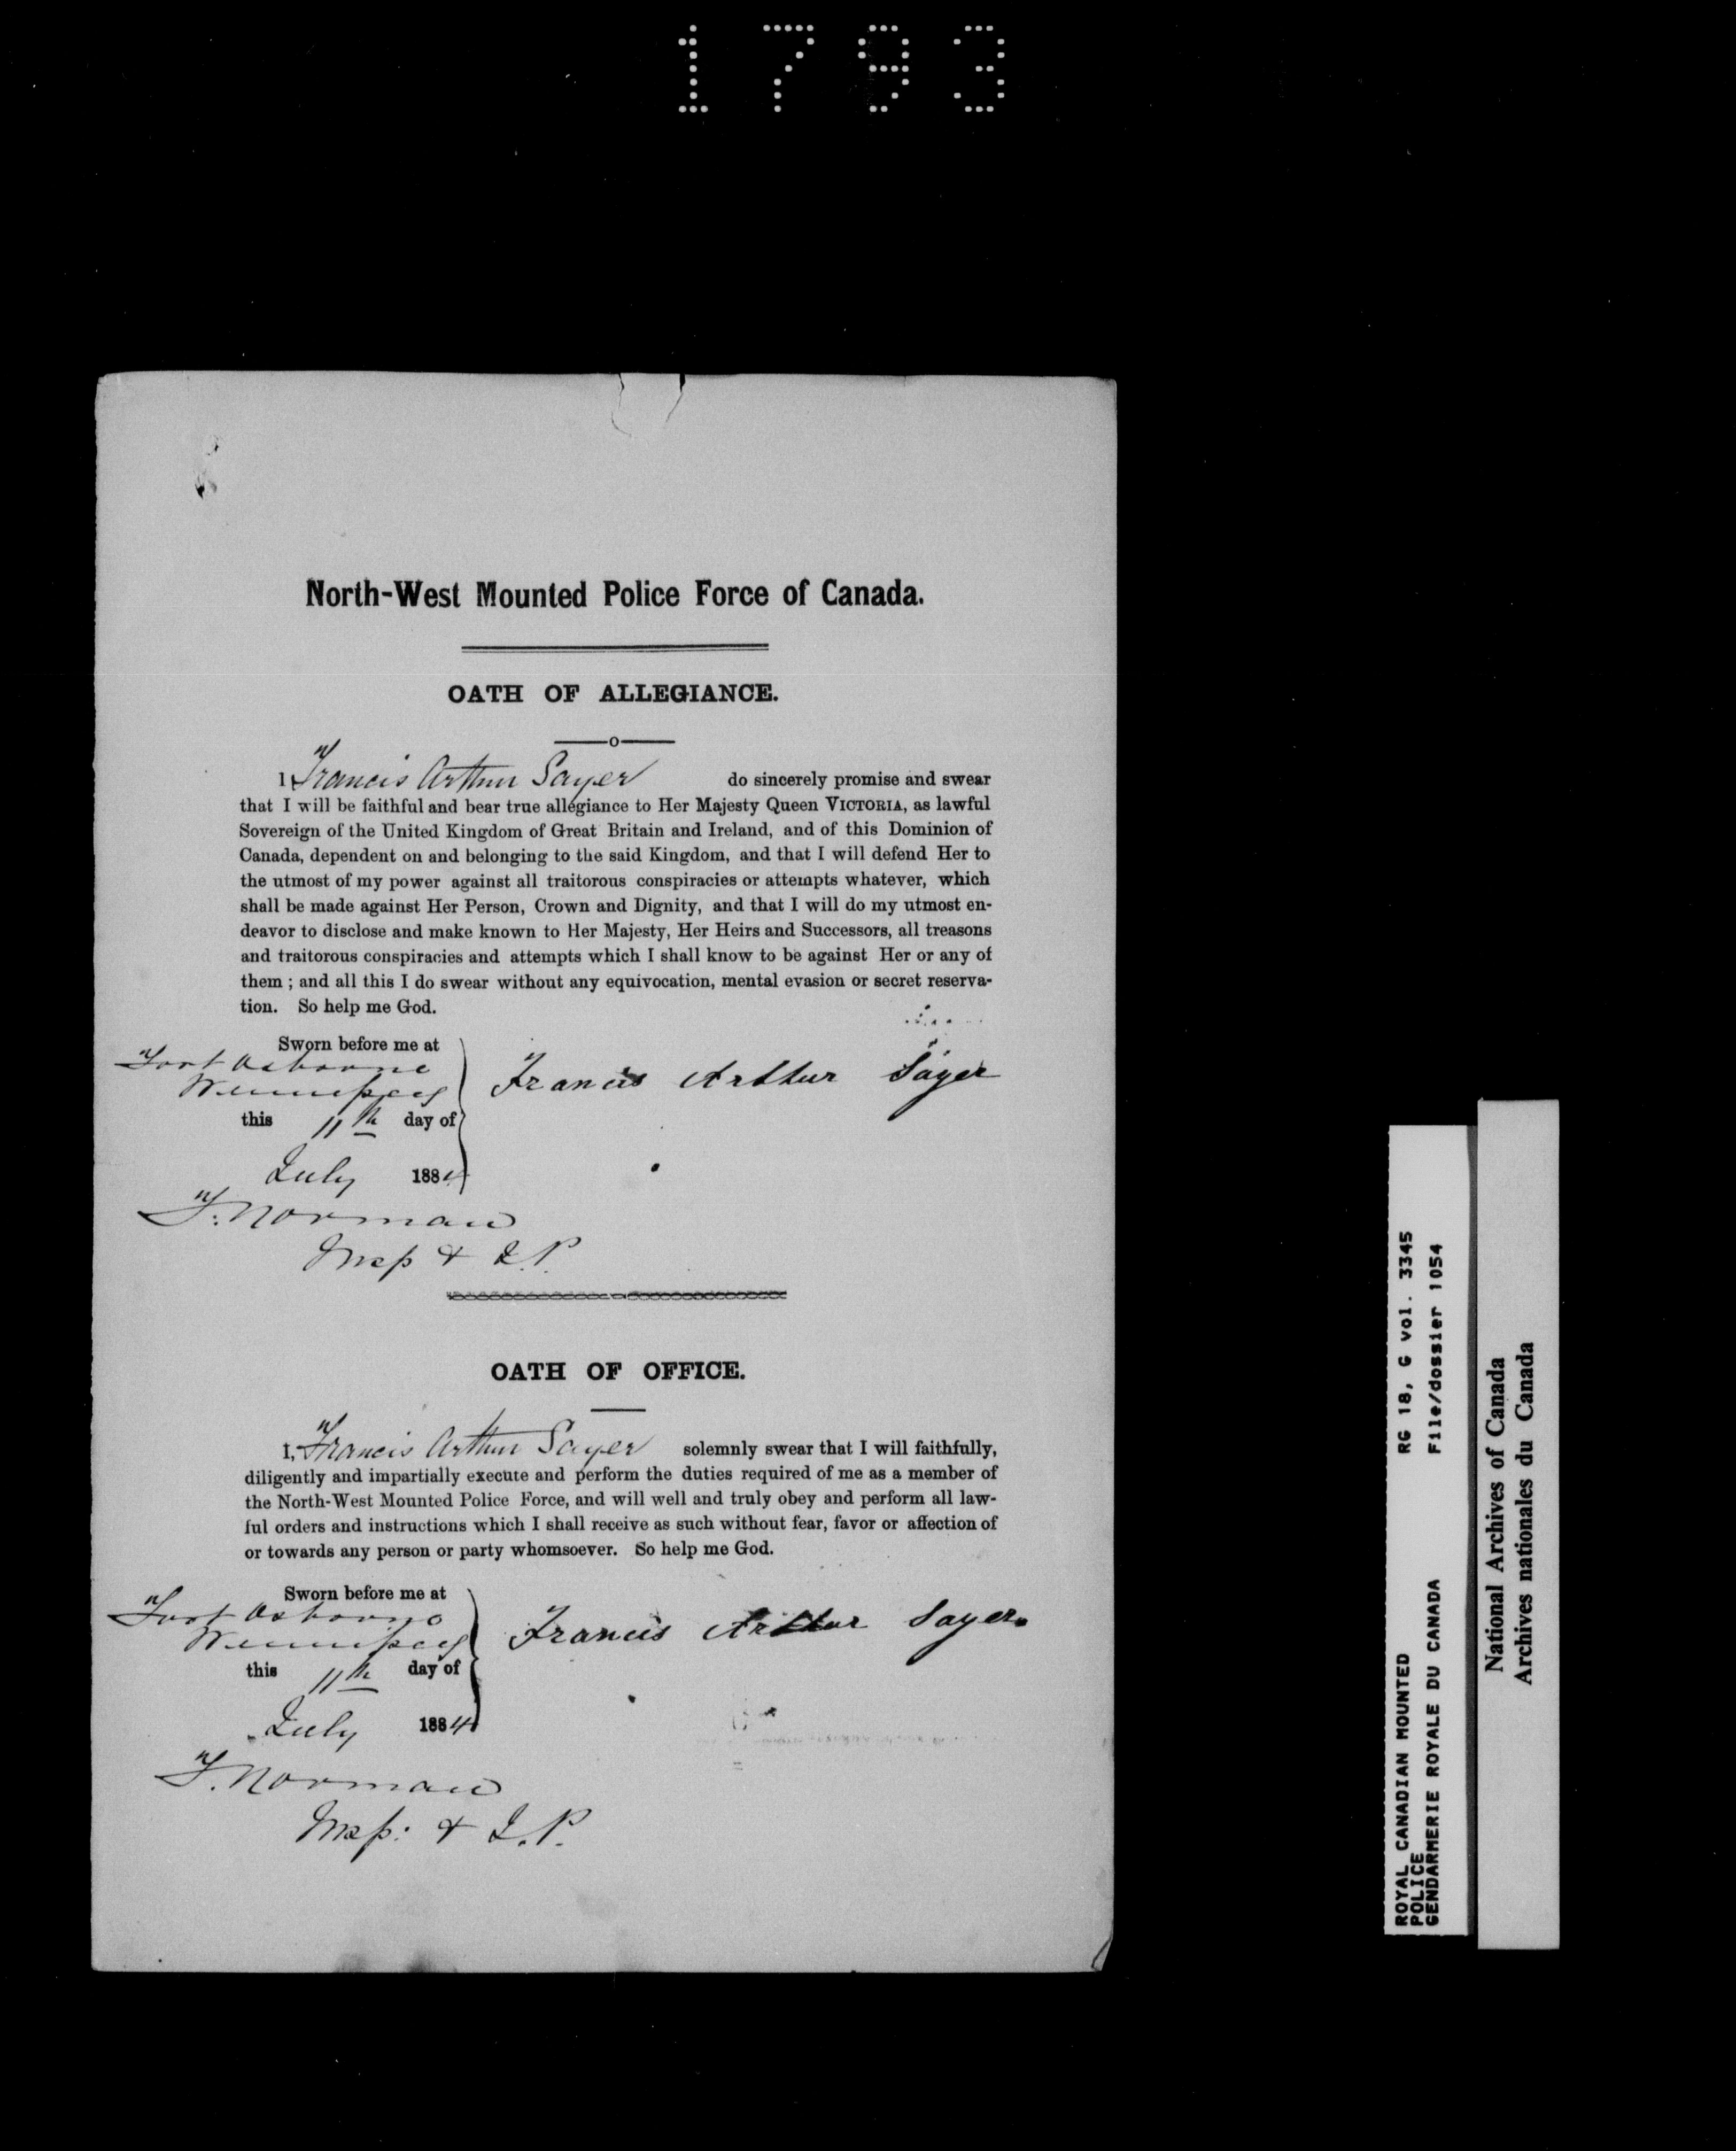 1793
North-West Mounted Police Force of Canada.
OATH OF ALLEGIANCE.
I, Francis Arthur Sayer do sincerely promise and swear
that I will be faithful and bear true allegiance to Her Majesty Queen VICTORIA, as lawful
Sovereign of the United Kingdom of Great Britain and Ireland, and of this Dominion of
Canada, dependent on and belonging to the said Kingdom, and that I will defend Her to
the utmost of my power against all traitorous conspiracies or attempts whatever, which
shall be made against Her Person, Crown and Dignity, and that I will do my utmost en-
deavor to disclose and make known to Her Majesty, Her Heirs and Successors, all treasons
and traitorous conspiracies and attempts which I shall know to be against Her or any of
them ; and all this I do swear without any equivocation, mental evasion or secret reserva-
tion. So help me God.
Sworn before me at
Fort Osborne
Winnipeg
Francis Arthur Sayer
this 11th day of
July 1884
F. Norman
Insp & J.P.
OATH OF OFFICE.
I, Francis Arthur Sayer solemnly swear that I will faithfully,
diligently and impartially execute and perform the duties required of me as a member of
the North-West Mounted Police Force, and will well and truly obey and perform all law-
ful orders and instructions which I shall receive as such without fear, favor or affection of
or towards any person or party whomsoever. So help me God.
Sworn before me at
Fort Osborne
Winnipeg
Francis Arthur Sayer.
this 11th day of
July 1884
F. Norman
Insp: & J.P.
ROYAL CANADIAN MOUNTED RG 18, G vol. 3345
POLICE
GENDARMERIE ROYALE DU CANADA File/dossier 1054
National Archives of Canada
Archives nationales du Canada